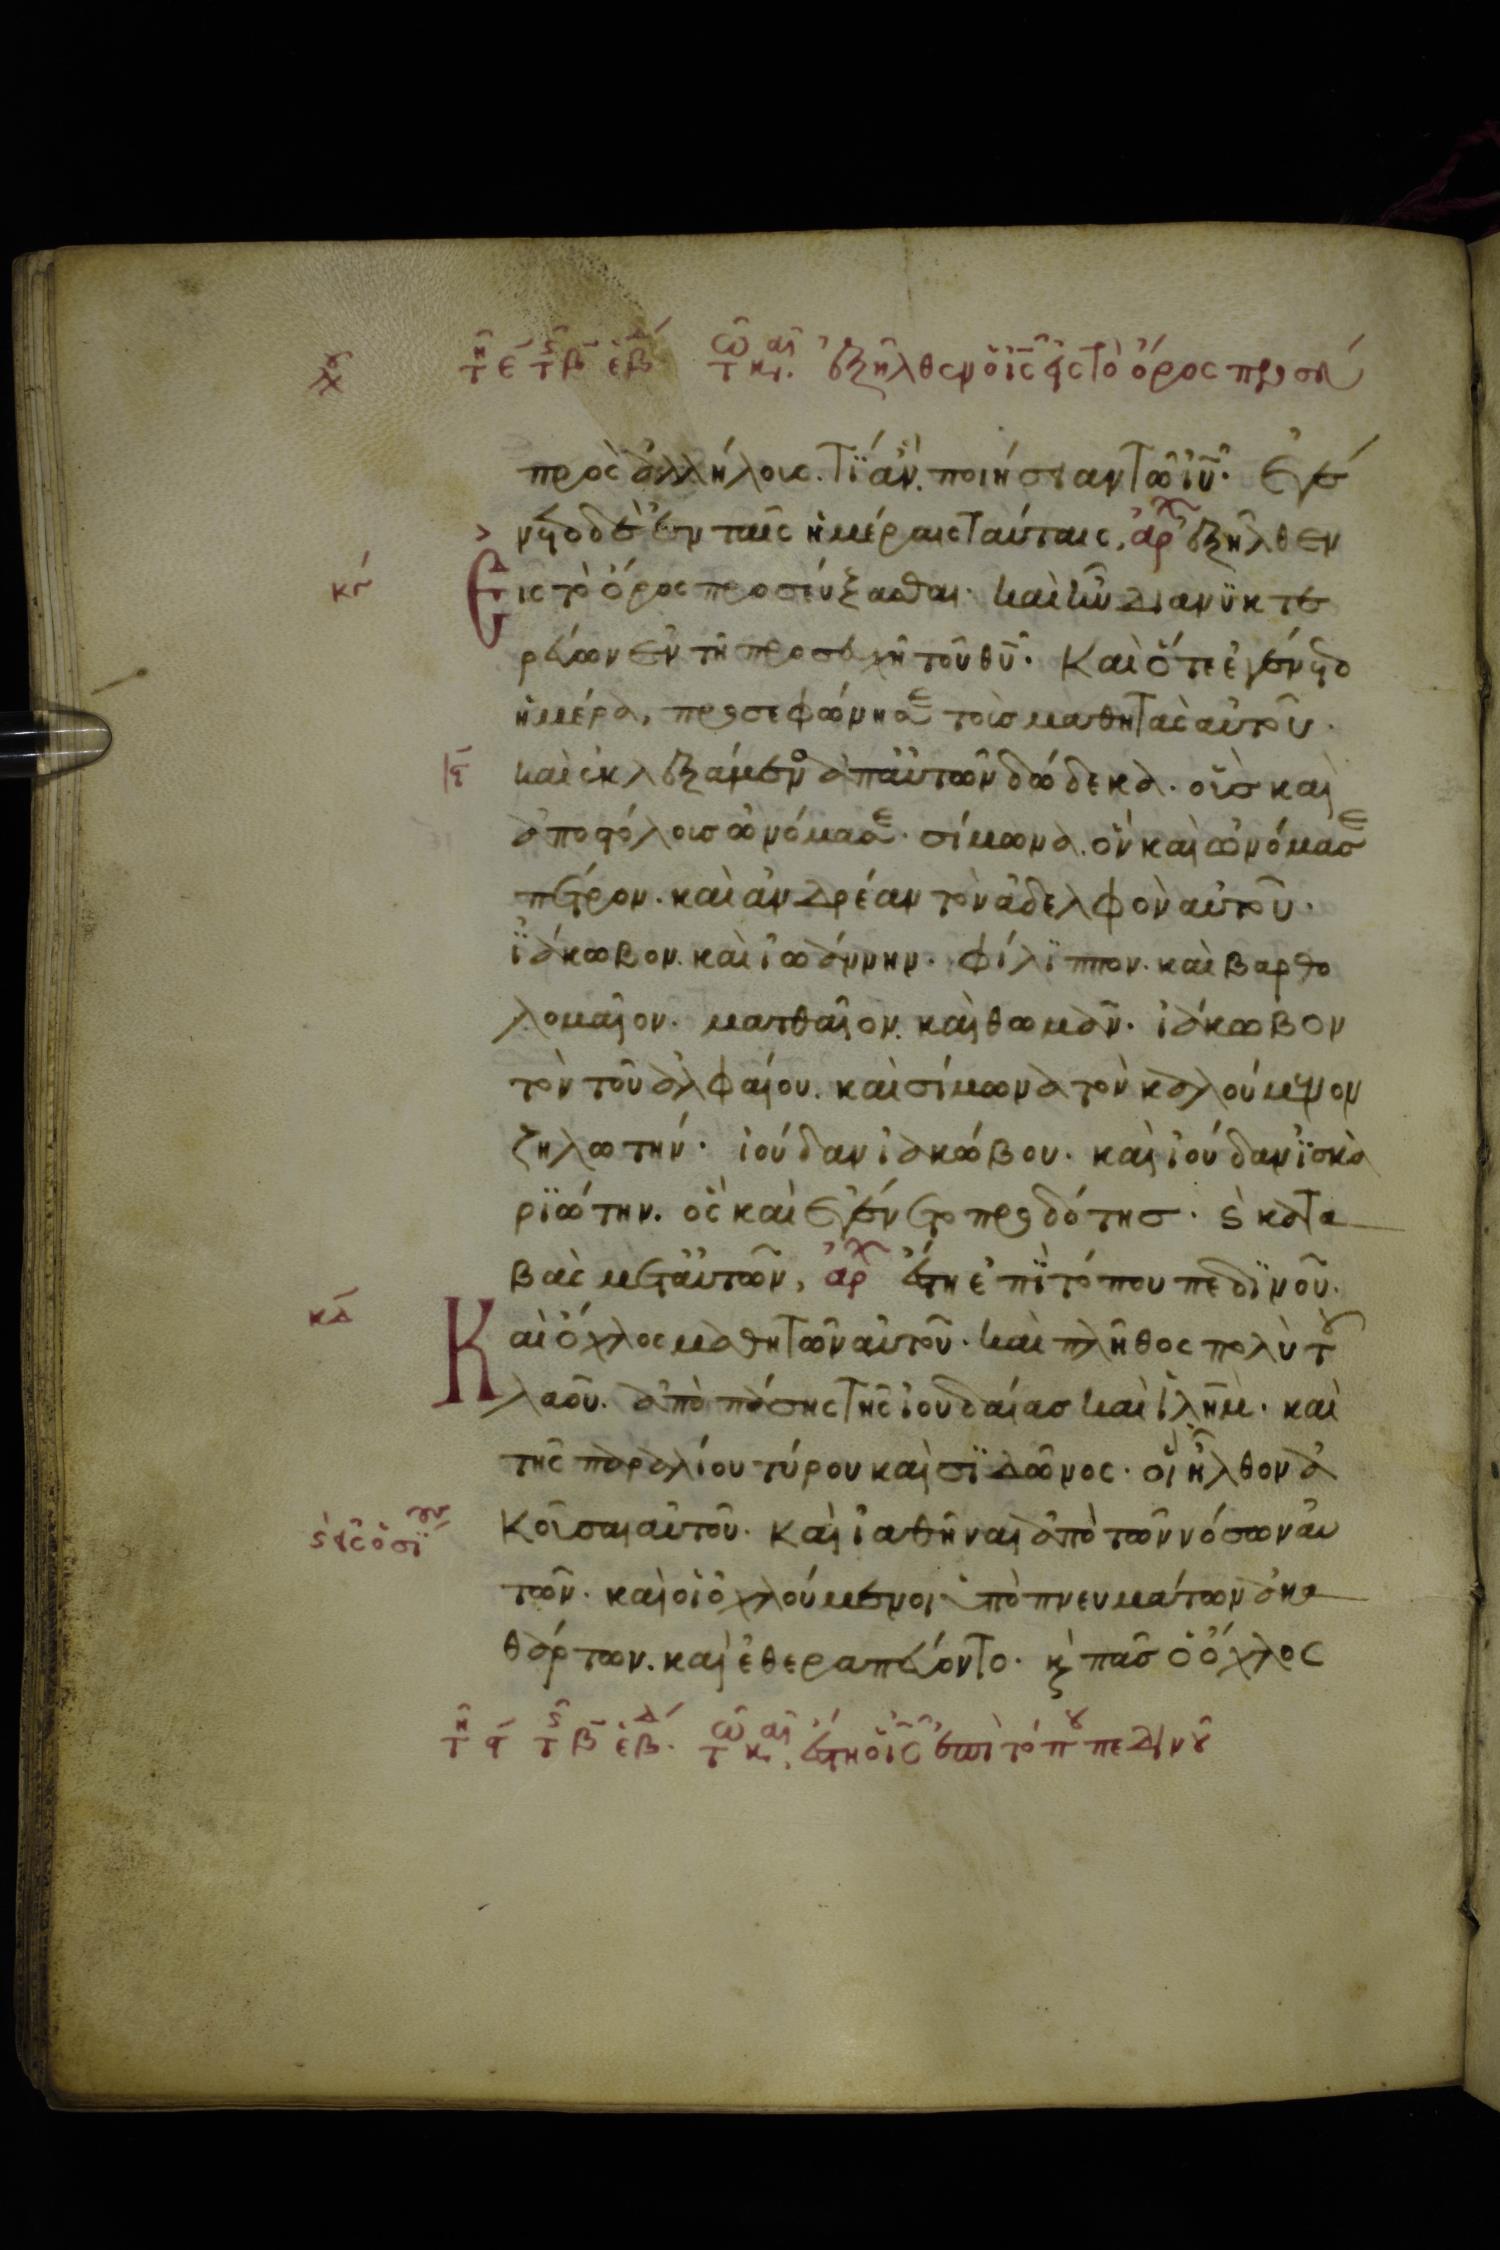 τῇ ε τῆς β ἑβδ τῷ καιρ. ἐξῆλθεν ὁ ις εἰς τὸ ὄρος προσευ
πρὸς ἀλλήλους. τί ἂν ποιήσειαν τῷ ιυ. Ἐγέ
νετο δὲ ἐν ταῖς ἡμέραις ταύταις, αρχ ἐξῆλθεν
Εἰς τὸ ὄρος προσεύξασθαι. καὶ ἦν διανυκτε
ρεύων ἐν τῇ προσευχῇ τοῦ θυ. Καὶ ὅτε ἐγένετο
ἡμέρα, προσεφώνησε τοῖς μαθηταῖς αὐτοῦ.
καὶ ἐκλεξάμενος ἀπ' αὐτῶν δώδεκα. οὓς καὶ
ἀποστόλους ὠνόμασε. σίμωνα. ὃν καὶ ὠνόμασε
πέτρον. καὶ ἀνδρέαν τὸν ἀδελφὸν αὐτοῦ.
ἰάκωβον. καὶ ἰωάννην. φίλιππον. καὶ βαρθο
λομαῖον. ματθαῖον. καὶ θωμᾶν. ἰάκωβον
τὸν τοῦ ἀλφαίου. καὶ σίμωνα τὸν καλούμενον
ζηλωτήν. ἰούδαν ἰακώβου. καὶ ἰούδαν ἰσκα
ριώτην. ὃς καὶ ἐγένετο προδότης. ϛ κατα
βὰς μετ' αὐτῶν, αρχ ἔστη ἐπὶ τόπου πεδινοῦ.
κδ
Καὶ ὄχλος μαθητῶν αὐτοῦ. καὶ πλῆθος πολὺ τοῦ
λαοῦ. ἀπὸ πάσης τῆς ἰουδαίας καὶ ιλημ. καὶ
τῆς παραλίου τύρου καὶ σιδῶνος. οἳ ἦλθον ἀ
κοῦσαι αὐτοῦ. καὶ ἰαθῆναι ἀπὸ τῶν νόσων αὐ
τῶν. καὶ οἱ ὀχλούμενοι ὑπὸ πνευμάτων ἀκα
θάρτων. καὶ ἐθεραπεύοντο. κ πᾶς ὁ ὄχλος
τῇ ϛ τῆς β ἑβδ. τῷ καιρ, ἔστη ὁ ις ἐπὶ τόπου πεδινοῦ